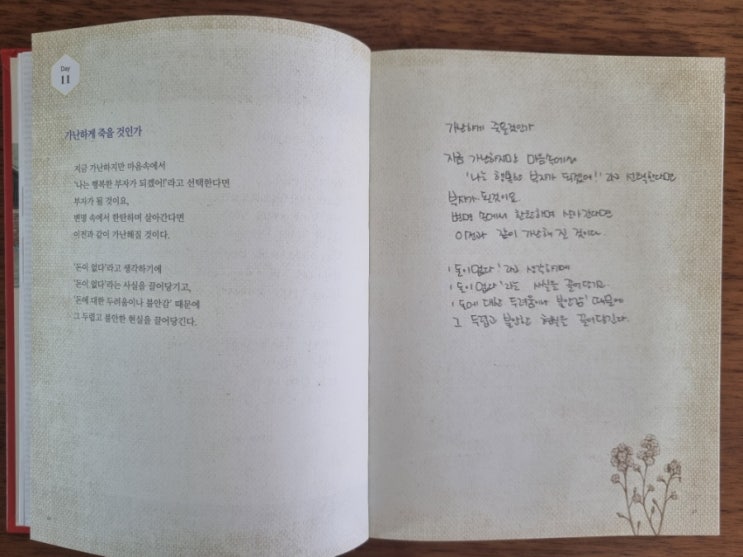 Day
11
가난하게 죽을 것인가
지금 가난하지만 마음속에서
'나는 행복한 부자가 되겠어!'라고 선택한다면
부자가 될 것이요,
변명 속에서 한탄하며 살아간다면
이전과 같이 가난해질 것이다.
'돈이 없다'라고 생각하기에
'돈이 없다'라는 사실을 끌어당기고,
'돈에 대한 두려움이나 불안감' 때문에
그 두렵고 불안한 현실을 끌어당긴다.
가난하게 죽을것인가
지금 가난하지만 마음속에서
'나는 행복한 부자가 되겠어!' 라고 선택한다면
부자가 될것이요
변명 속에서 한탄하며 살아간다면
이전과 같이 가난해 질 것이다.
'돈이없다' 라고 생각하기에
'돈이없다' 라는 사실을 끌어당기고
'돈에 대한 두려움이나 불안감' 때문에
그 두렵고 불안한 현실을 끌어당긴다.